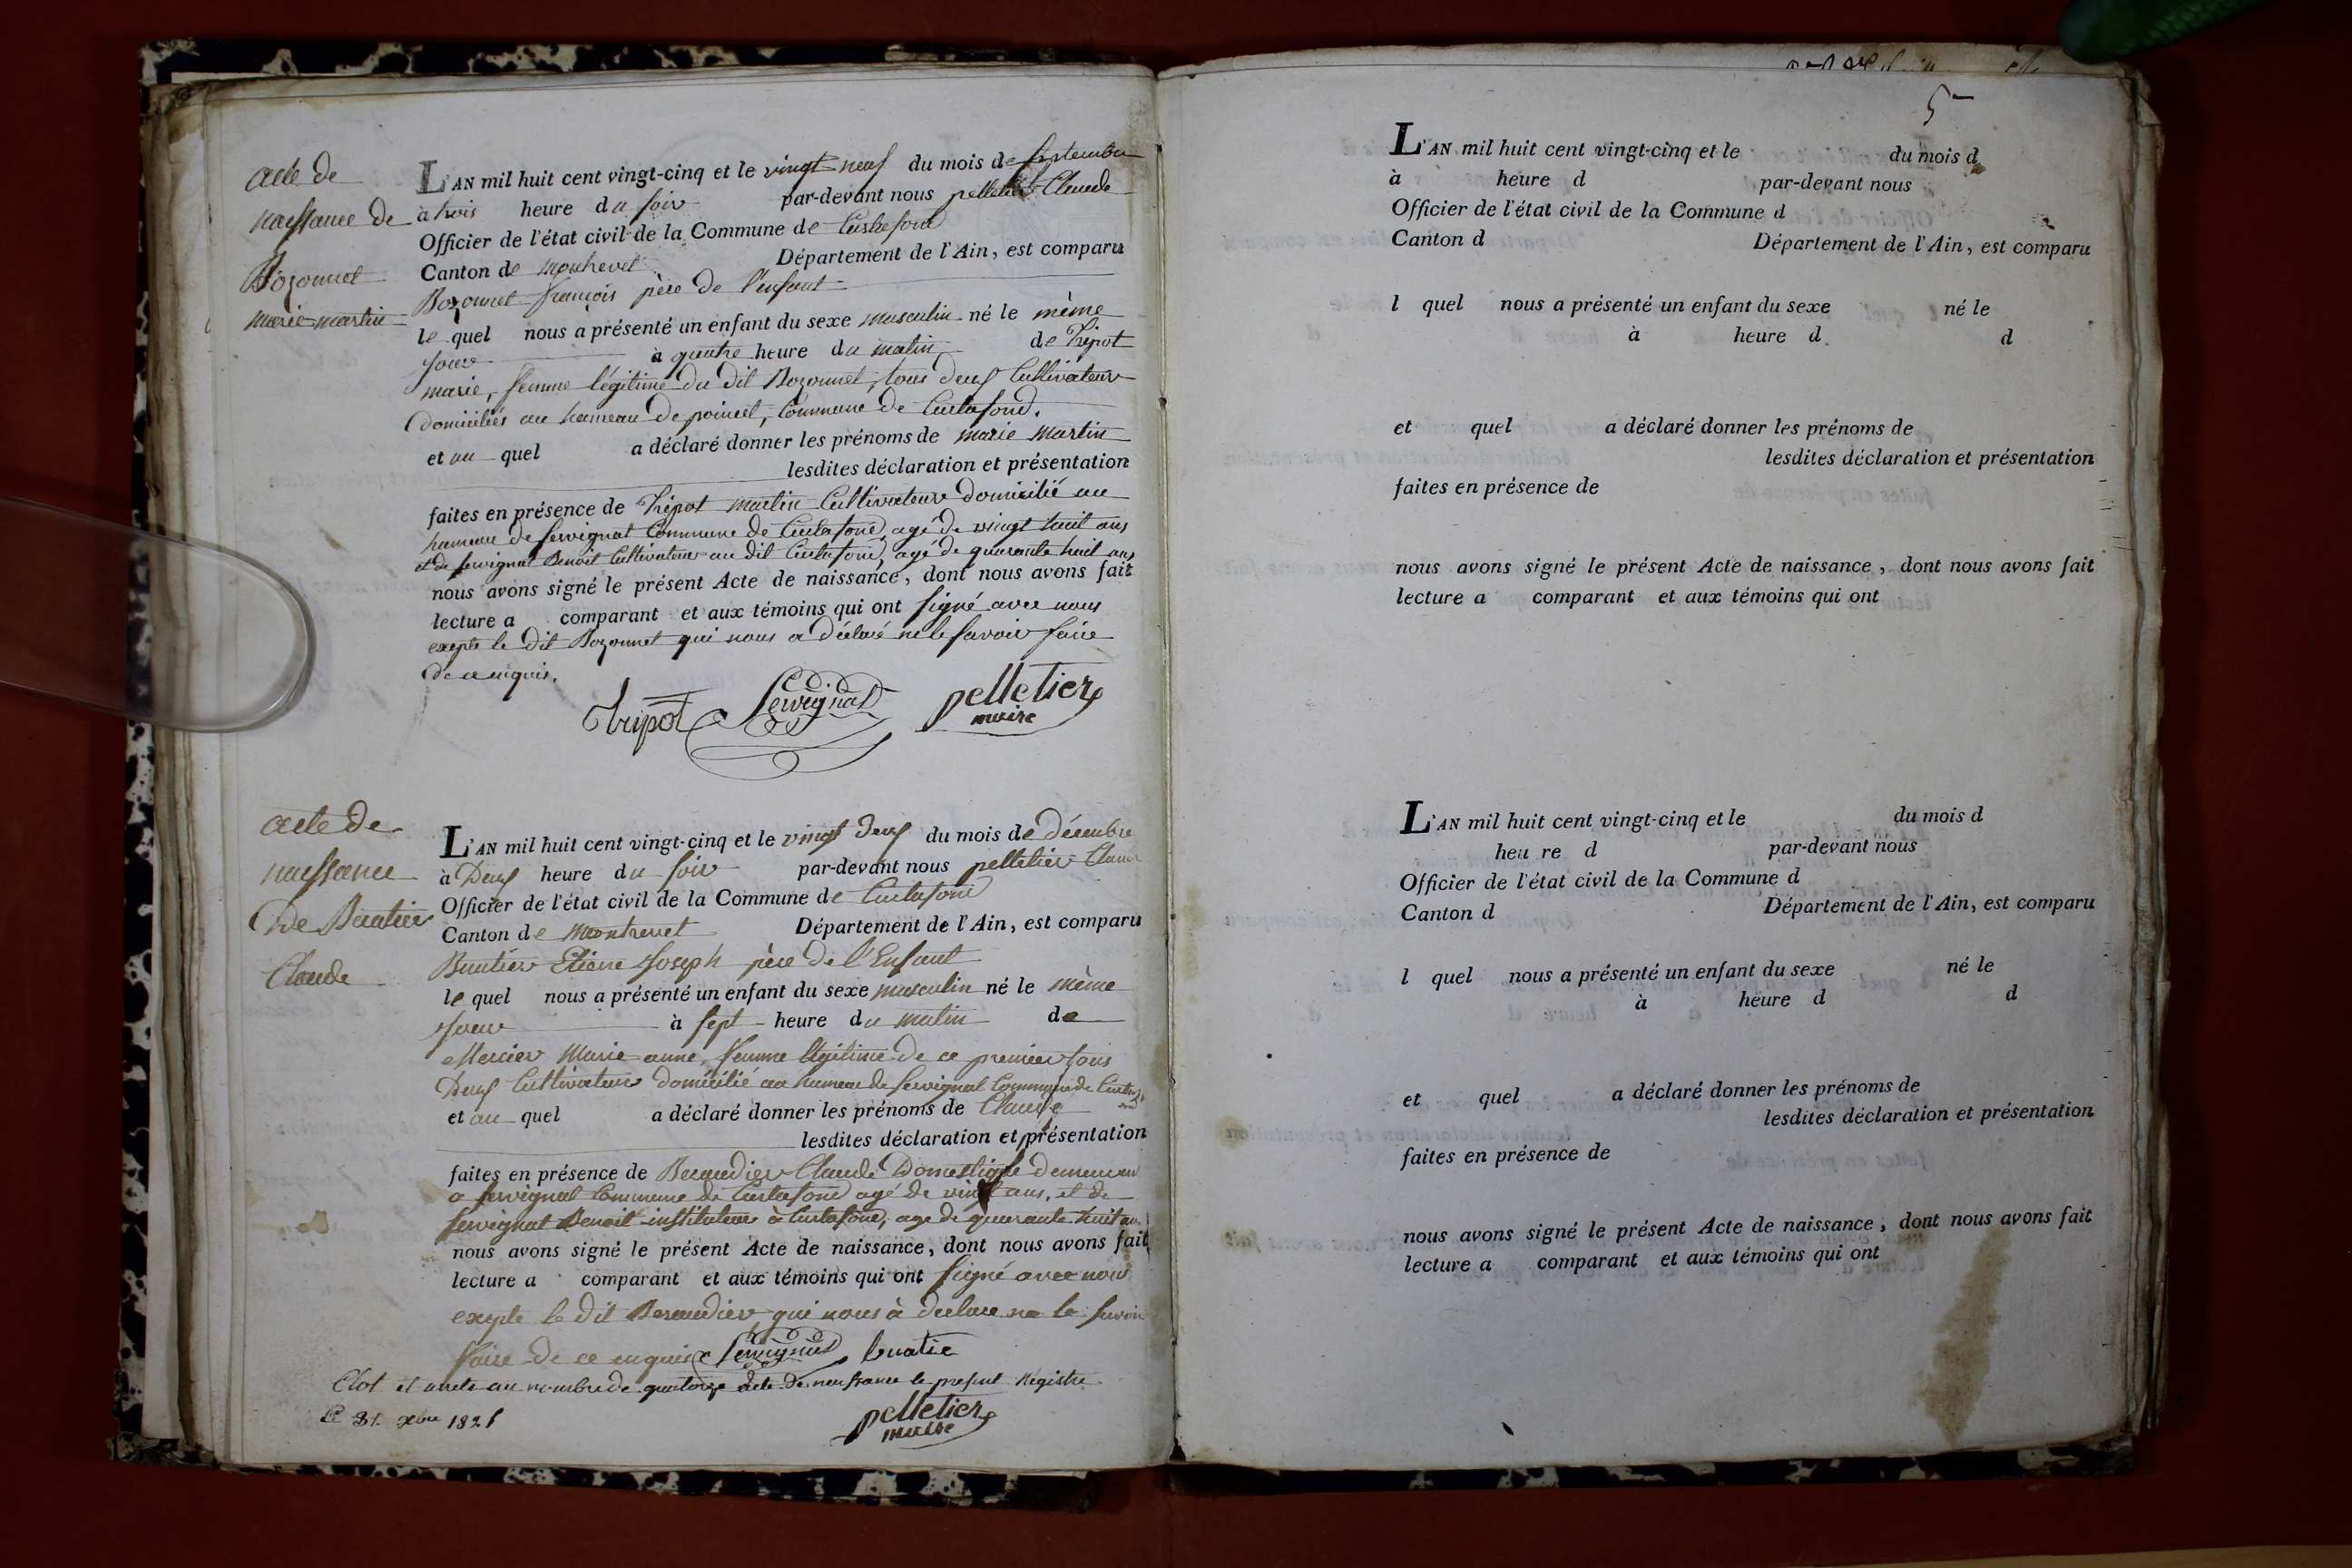 acte de
naissance de
Bozonnet
marie martin
L'AN mil huit cent vingt-cinq et le vingt neuf du mois de septembre
à trois heure du soir par-devant nous pelletier Claude
Officier de l'état civil de la Commune de Curtafond
Canton de montrevel Département de l'Ain, est comparu
Bozonnet françois père de l'enfant
le quel nous a présenté un enfant du sexe masculin né le mème
jour à quatre heure du matin de Tripot
marie, femme légitime du dit Bozonnet, tous deux Cultivateur
domiciliés au hameau de poincet, Commune de Curtafond.
et au quel a déclaré donner les prénoms de marie martin
lesdites déclaration et présentation
faites en présence de Tripot martin Cultivateur domicilié au
hameau de servignat Commune de Curtafond, agé de vingt huit ans
et de servignat Benoit Cultivateur au dit Curtafond, agé de quarante huit ans
nous avons signé le présent Acte de naissance, dont nous avons fait
lecture a comparant et aux témoins qui ont signé avec nous
exepte le dit Bozonnet qui nous a déclaré ne le savoir faire
de ce enquis.
Tripot Servignat pelletier
maire
acte de
naissance
de Buatier
Claude
L'AN mil huit cent vingt-cinq et le vingt deux du mois de décembre
à Deux heure du soir par-devant nous pelletier Claude
Officier de l'état civil de la Commune de Curtafond
Canton de montrevel Département de l'Ain, est comparu
Buatier Etiene Joseph père de l'Enfant
le quel nous a présenté un enfant du sexe masculin né le mème
jour à sept heure du matin de
Mercier Marie anne, femme légitime de ce premier tous
Deux Cultivateur domicilié au hameau de servignat Commune de Curtafond
et au quel a déclaré donner les prénoms de Claude
lesdites déclaration et présentation
faites en présence de Beraudier Claude Domestique demeurant
a servignat Commune de Curtafond agé de vingt ans, et de
servignat Benoit instituteur à Curtafond, age de quarante huit ans
nous avons signé le présent Acte de naissance, dont nous avons fait
lecture a comparant et aux témoins qui ont signé avec nous
exepte le dit Beraudier qui nous à declare ne le savoir
faire de ce enquis Servignat buatie
Clot et arrete au nombre de quatorze acte de naissance le present Régistre
le 31. xbre 1825
pelletier
maire
5
L'AN mil huit cent vingt-cinq et le du mois d
à heure d par-devant nous
Officier de l'état civil de la Commune d
Canton d Département de l'Ain, est comparu
l quel nous a présenté un enfant du sexe né le
à heure d d
et quel a déclaré donner les prénoms de
lesdites déclaration et présentation
faites en présence de
nous avons signé le présent Acte de naissance, dont nous avons fait
lecture a comparant et aux témoins qui ont
L'AN mil huit cent vingt-cinq et le du mois d
heu re d par-devant nous
Officier de l'état civil de la Commune d
Canton d Département de l'Ain, est comparu
l quel nous a présenté un enfant du sexe né le
à heure d d
et quel a déclaré donner les prénoms de
lesdites déclaration et présentation
faites en présence de
nous avons signé le présent Acte de naissance, dont nous avons fait
lecture a comparant et aux témoins qui ont